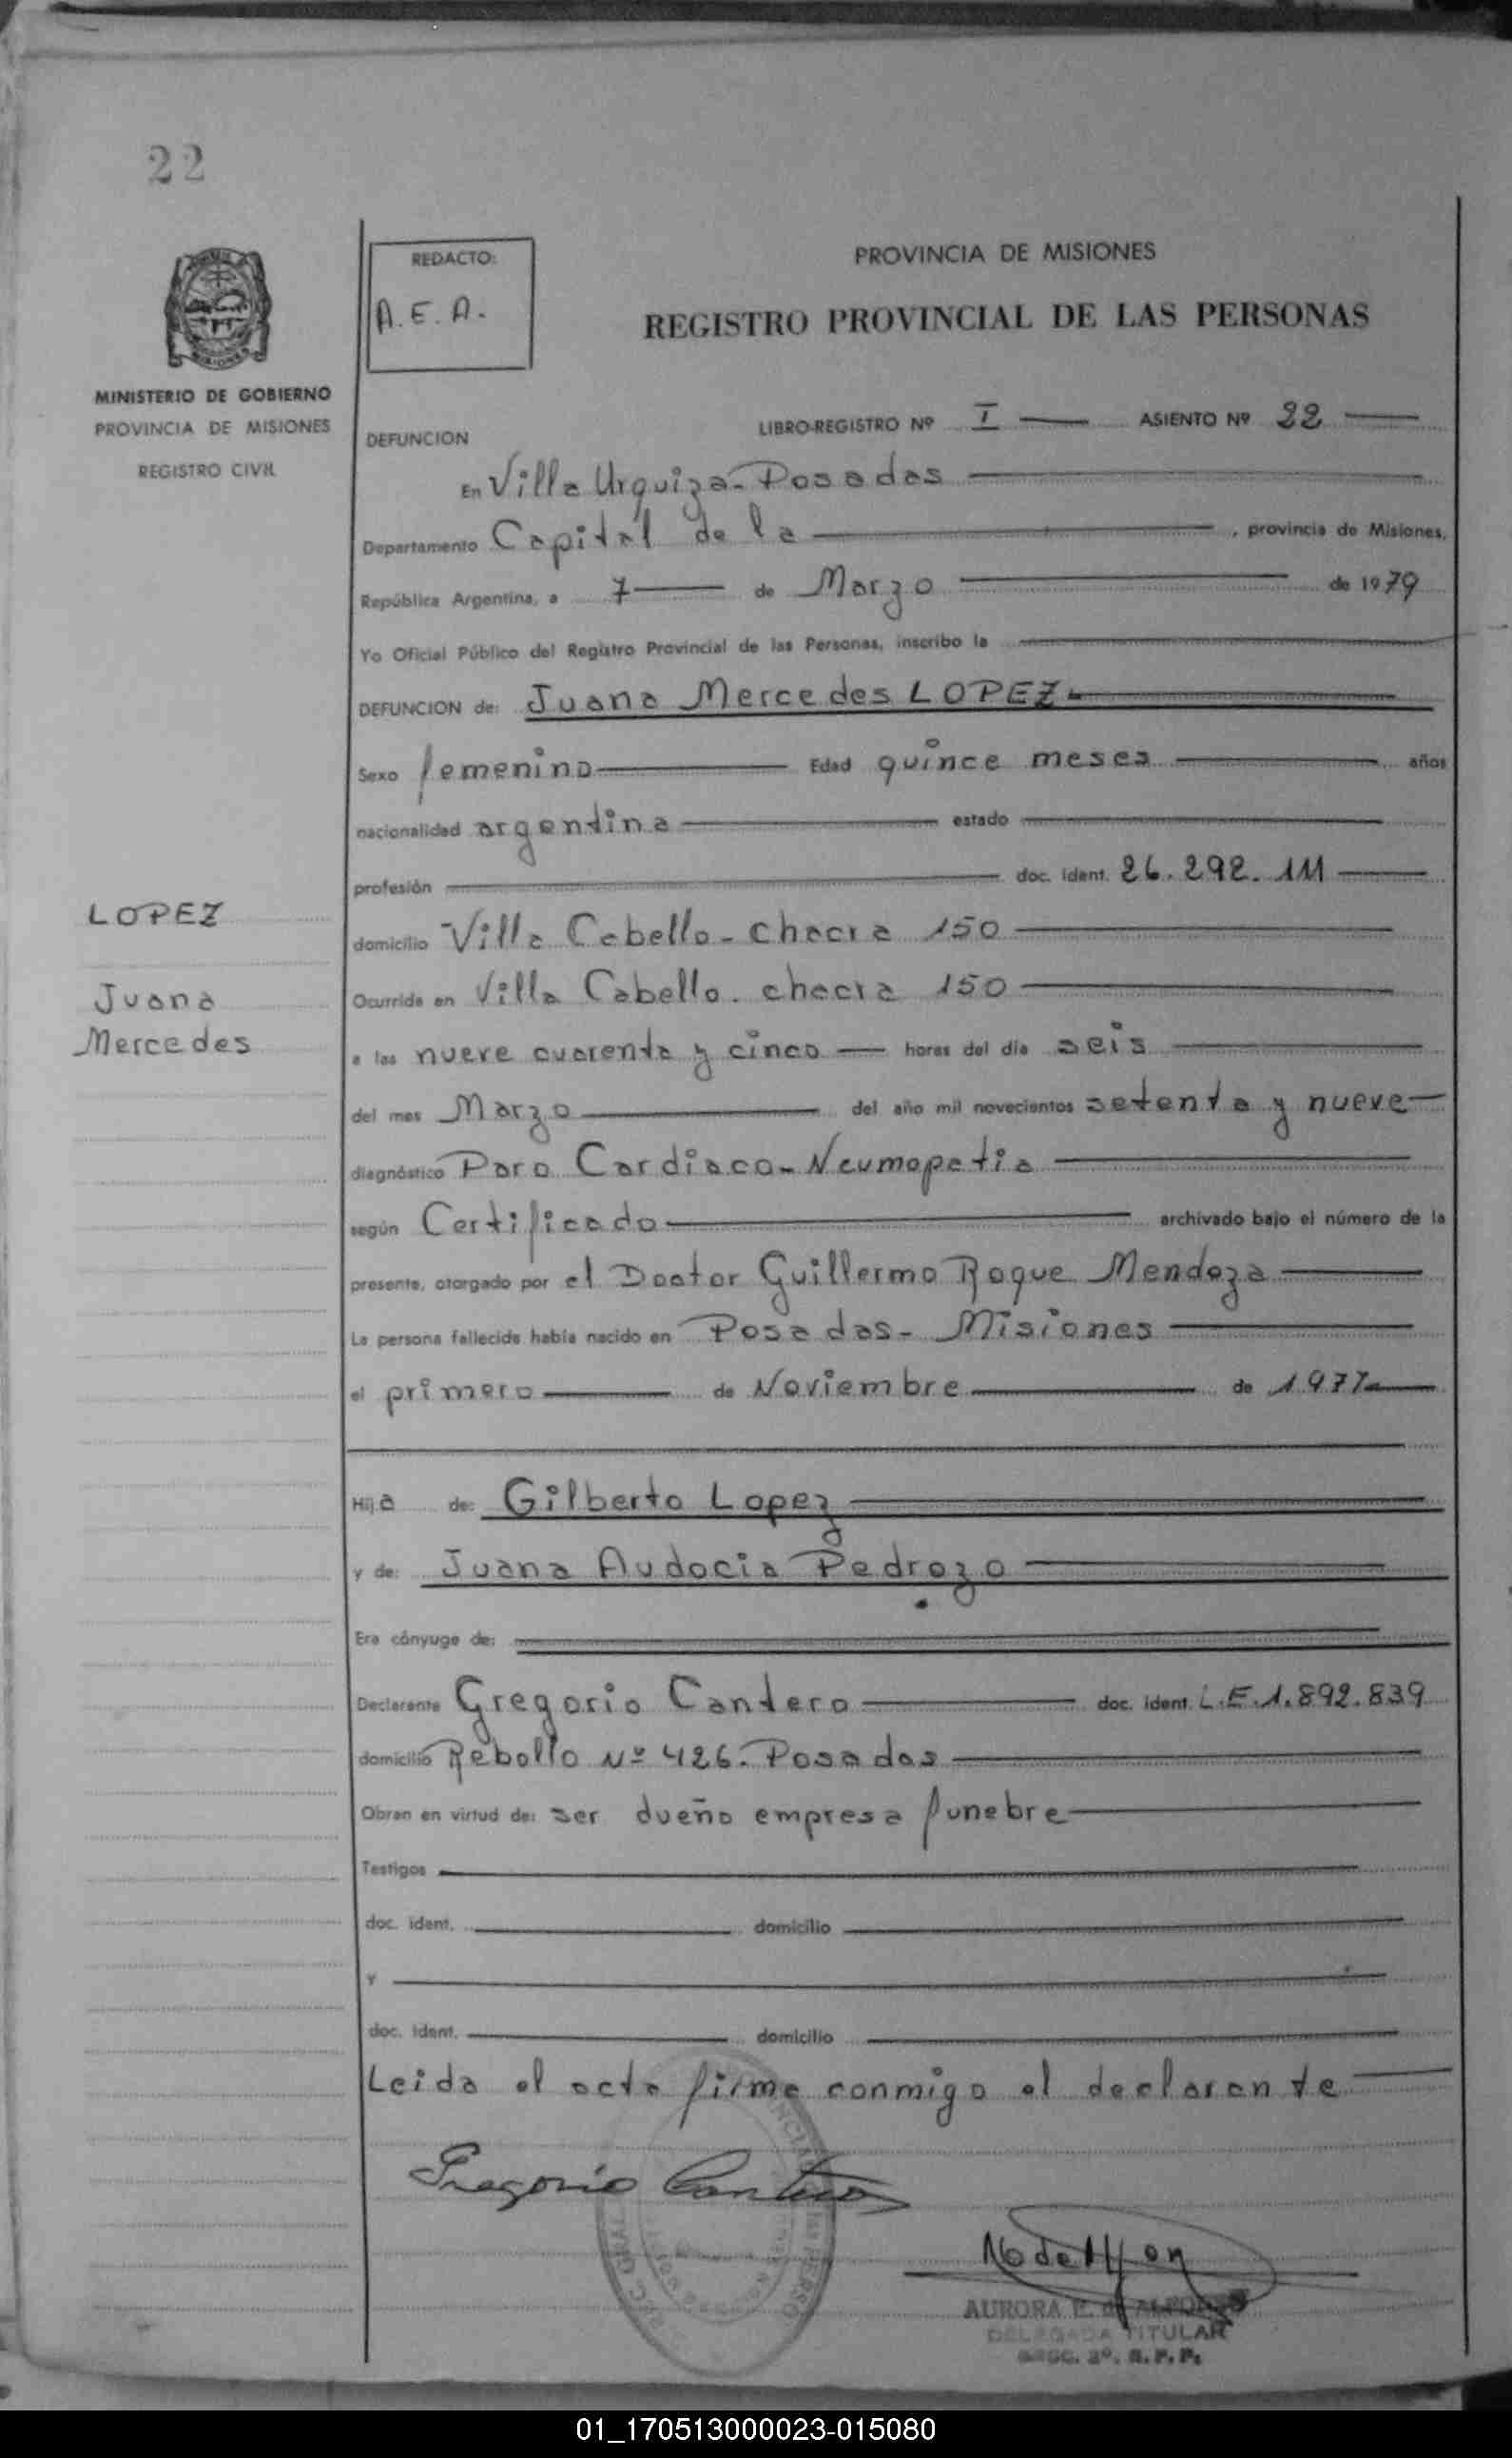 22
MINISTERIO DE GOBIERNO
PROVINCIA DE MISIONES
REGISTRO CIVIL
REDACTO:
A.E.A.
PROVINCIA DE MISIONES
REGISTRO PROVINCIAL DE LAS PERSONAS
LIBRO-REGISTRO Nº I ASIENTO Nº 22
DEFUNCION
En Villa Urquiza - Posadas
Departamento Capital de la , provincia de Misiones,
República Argentina, a 7 de Marzo de 1979
Yo Oficial Público del Registro Provincial de las Personas, inscribo la
DEFUNCION de: Juana Mercedes LOPEZ
Sexo femenino Edad quince meses años
nacionalidad argentina estado
profesión doc. ident. 26.292.111
LOPEZ
Juana
Mercedes
domicilio Villa Cabello - chacra 150
Ocurrida en Villa Cabello. chacra 150
a las nueve cuarenta y cinco horas del día seis
del mes Marzo del año mil novecientos setenta y nueve
diagnóstico Paro Cardiaco - Neumopatia
según Certificado archivado bajo el número de la
presente, otorgado por el Doctor Guillermo Roque Mendoza
La persona fallecida había nacido en Posadas - Misiones
el primero de Noviembre de 1977
Hija de: Gilberto Lopez
y de: Juana Audocia Pedrozo
Era cónyuge de:
Declarante Gregorio Cantero doc. ident. L.E.1.892.839
domicilio Rebollo Nº 426. Posadas
Obran en virtud de: ser dueño empresa funebre
Testigos
doc. ident. domicilio
y
doc. ident. domicilio
Leida el acta firma conmigo el declarante
Gregorio Cantero
AURORA E. de
DELEGADA TITULAR
R. P. P.
01_170513000023-015080